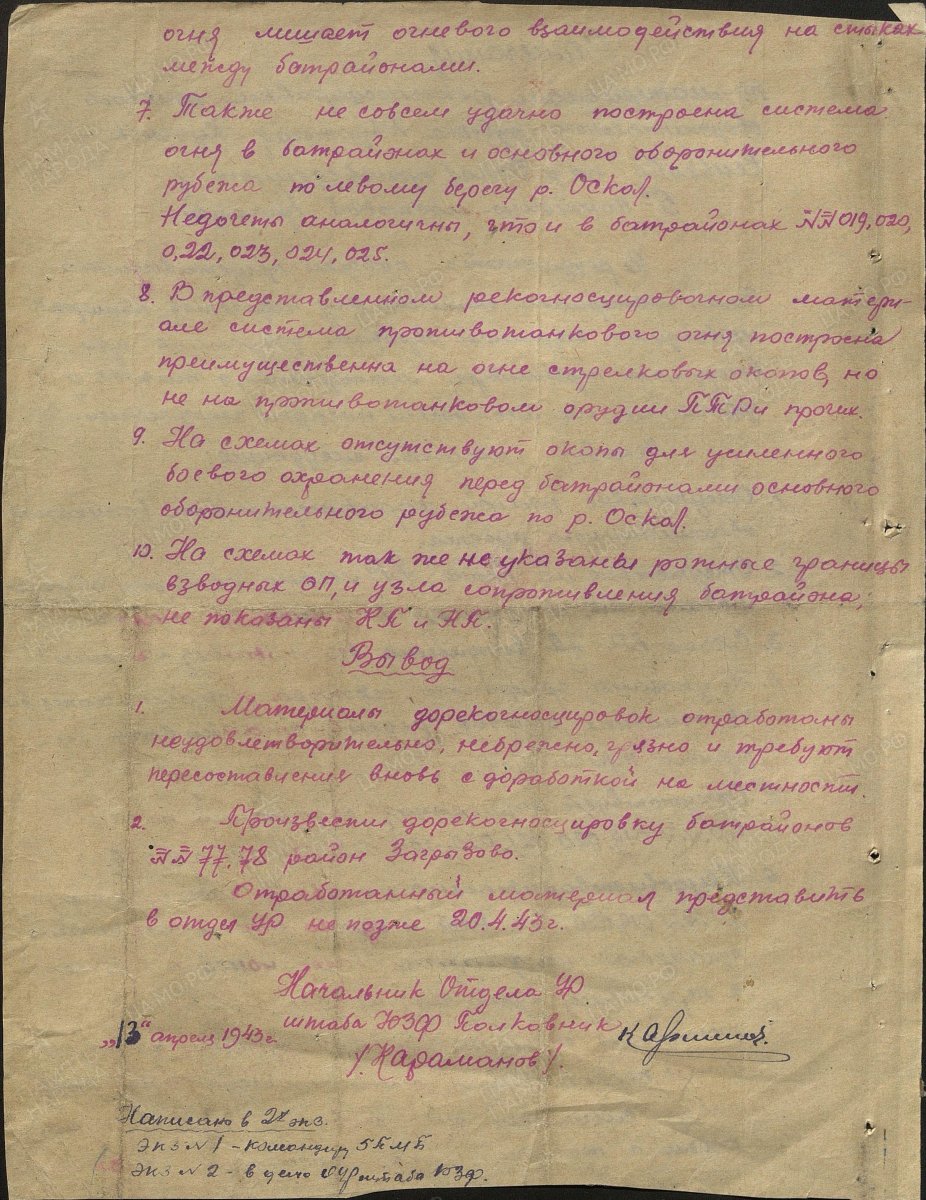 огня лишает огневого взаимодействия на стыках
между батрайонами.
7. Также не совсем удачно построена система
огня в батрайонах и основного оборонительного
рубежа по левому берегу р. Оскол.
Недочеты аналогичны, что и в батрайонах №№ 019, 020,
0,22, 023, 024, 025.
8. В представленном рекогносцировочном матери-
але система противотанкового огня построена
преимущественна на огне стрелковых окопов, но
не на противотанковом орудии ПТР и проч.
9. На схемах отсутствуют окопы для усиленного
боевого охранения перед батрайонами основного
оборонительного рубежа по р. Оскол.
10. На схемах так же не указаны ротные границы
взводных ОП, и узла сопротивления батрайона,
не показаны КП и НП.
Вывод
1. Материалы дорекогносцировок отработаны
неудовлетворительно, небрежно, грязно и требуют
пересоставления вновь с доработкой на местности.
2. Произвести дорекогносцировку батрайонов
№№ 77, 78 район Загрызово.
Отработанный материал представить
в отдел УР не позже 20.4.43 г.
Начальник Отдела УР
штаба ЮЗФ Полковник
„13“ апреля 1943 г.
/Караманов/.
Написано в 2х экз.
Экз № 1 - командиру
Экз № 2 - в дело УР штаба ЮЗФ.